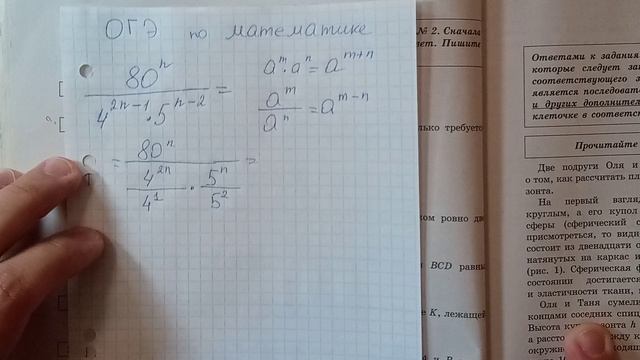 ОГЭ по математике
80ⁿ / (4²ⁿ⁻¹ · 5ⁿ⁻²) =
aᵐ · aⁿ = aᵐ⁺ⁿ
aᵐ / aⁿ = aᵐ⁻ⁿ
= 80ⁿ / (4²ⁿ / 4¹ · 5ⁿ / 5²) =
№ 2. Сначала
ет. Пишите
лько требуетс
ком ровно дв
BCD равны
е K, лежащей
Ответами к задания
которые следует за
соответствующего
является последоват
и других дополнител
клеточке в соответс
Прочитайте
Две подруги Оля и
о том, как рассчитать пл
зонта.
На первый взгля
круглым, а его купол
сферы (сферический с
присмотреться, то видн
состоит из двенадцати о
натянутых на каркас и
(рис. 1). Сферическая ф
состоянии достигаетс
и эластичности ткани,
Оля и Таня сумели
концами соседних спиц
Высота куп зонта h
а расстоя
окружно